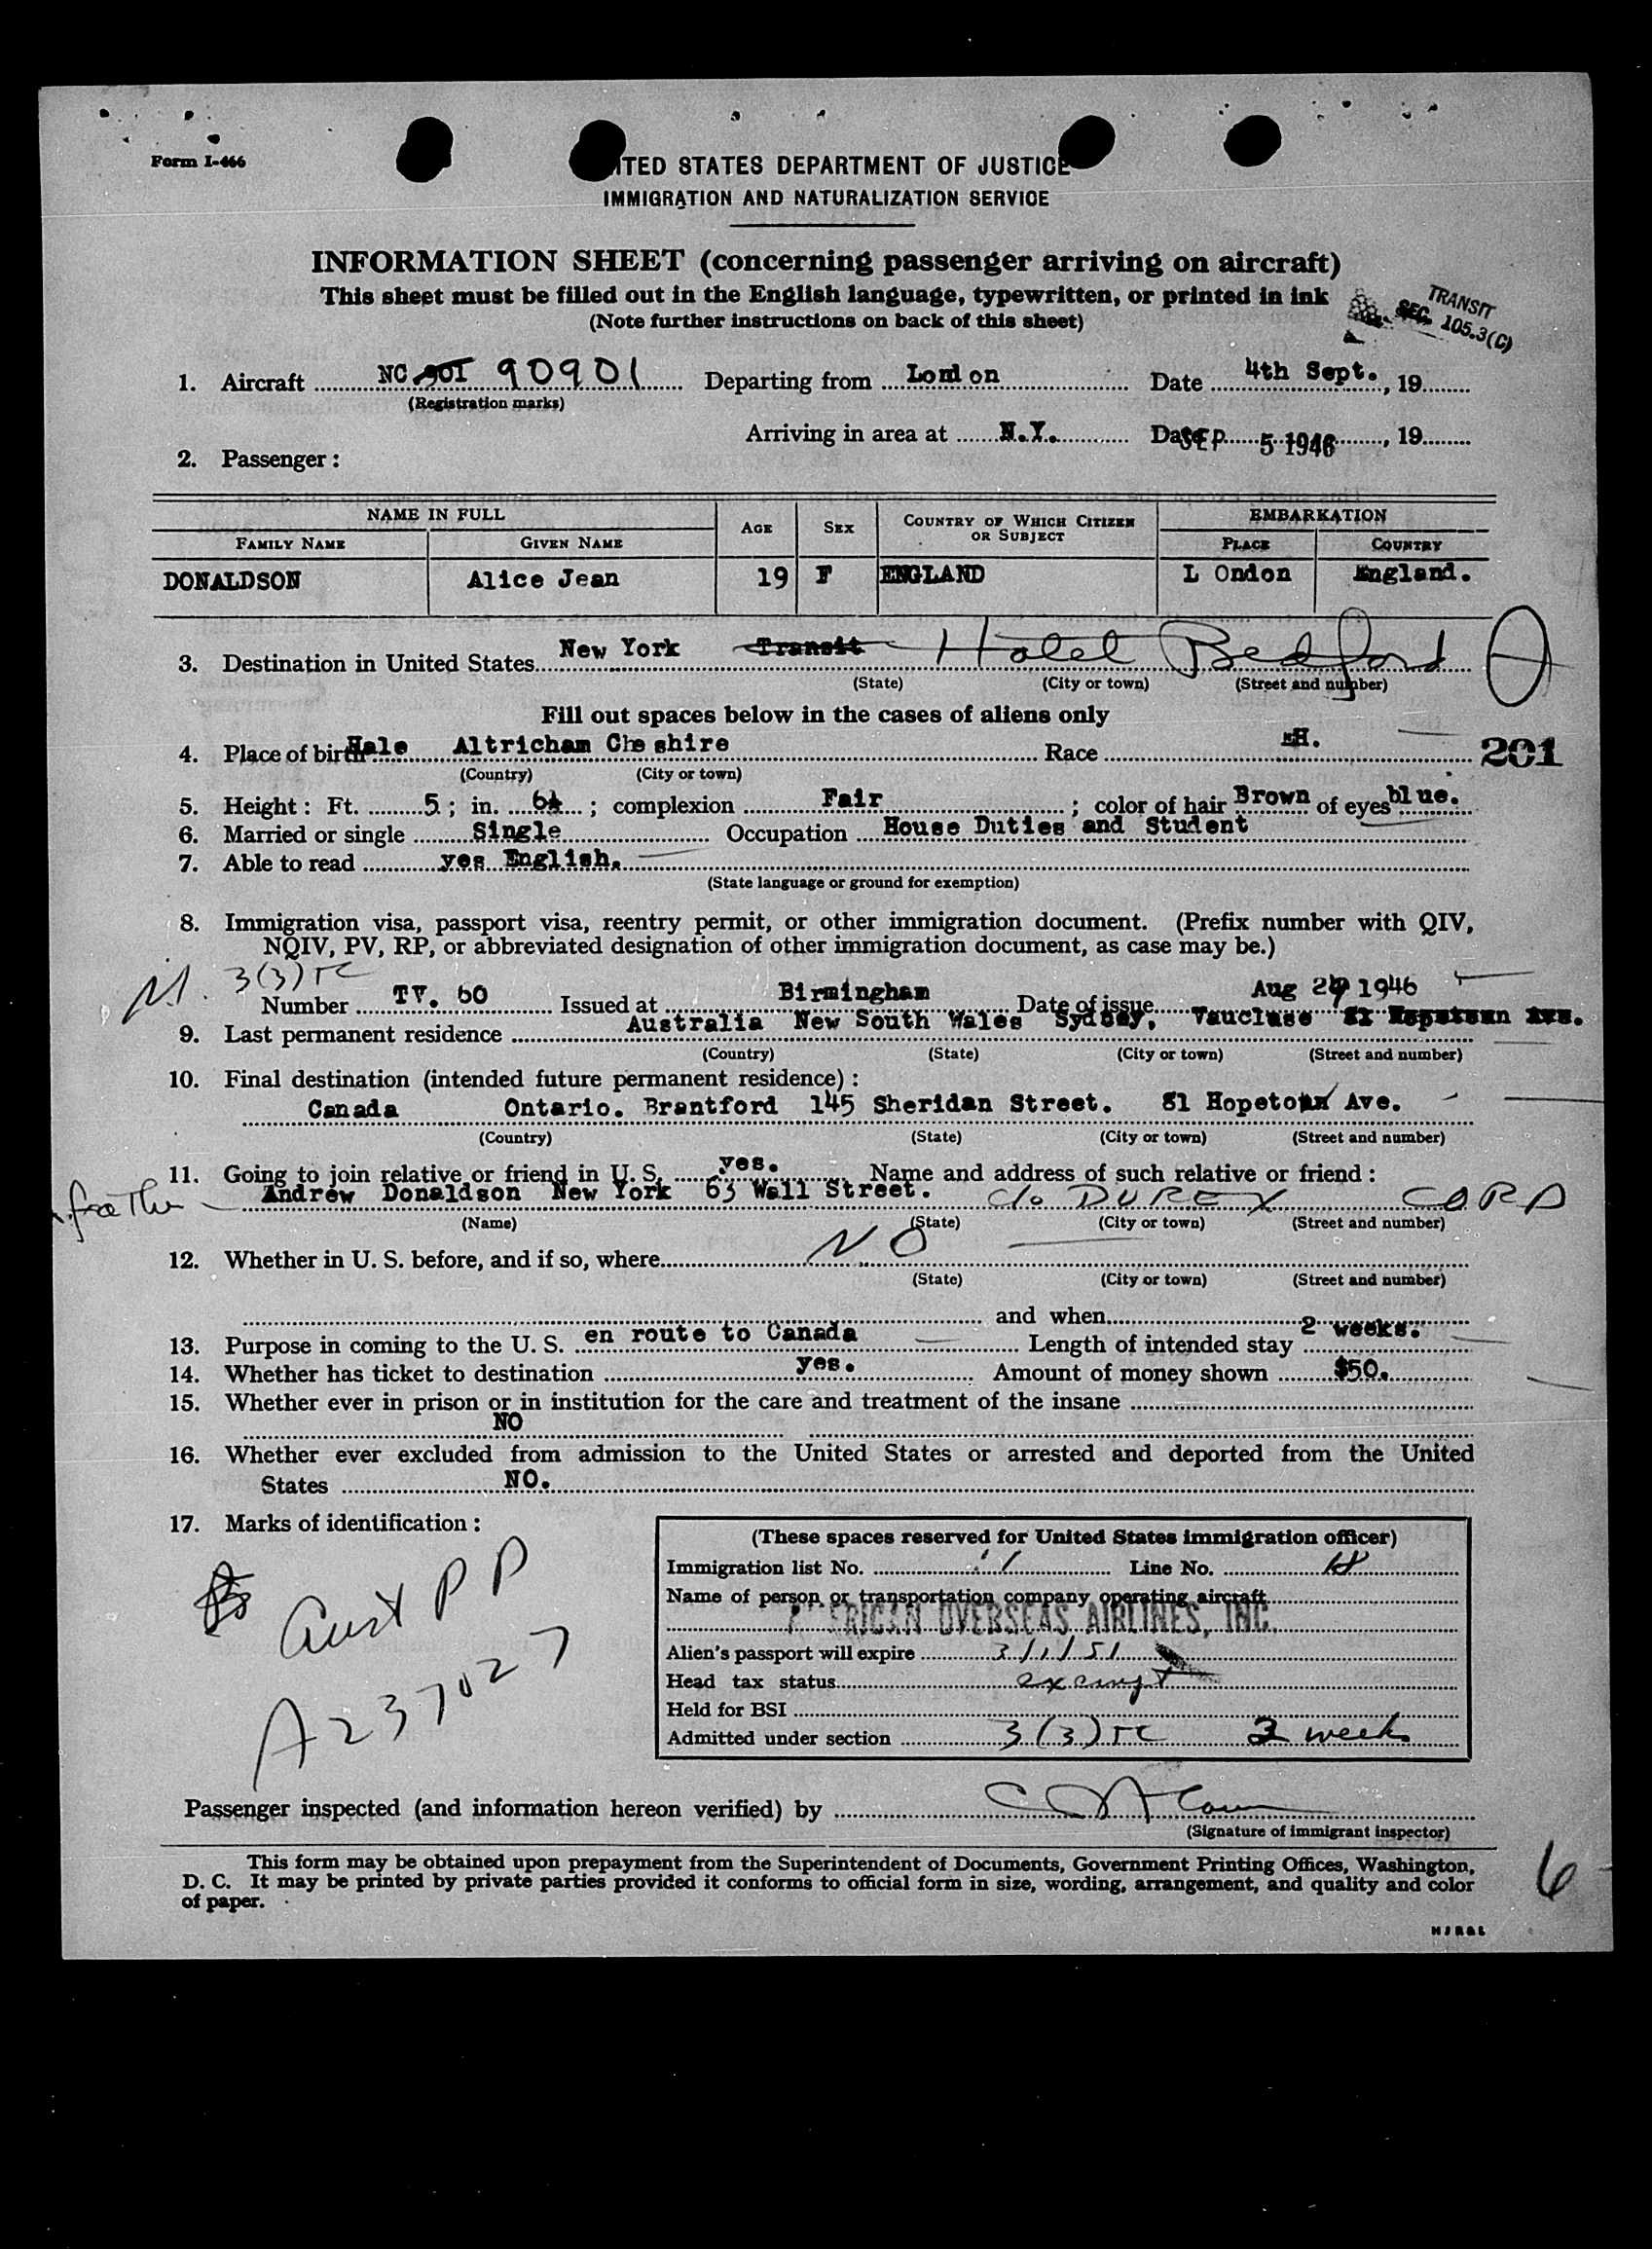 Form I-466
ITED STATES DEPARTMENT OF JUSTICE
IMMIGRATION AND NATURALIZATION SERVICE
INFORMATION SHEET (concerning passenger arriving on aircraft)
This sheet must be filled out in the English language, typewritten, or printed in ink
(Note further instructions on back of this sheet)
TRANSIT
SEC. 105.3(C)
1. Aircraft NC 901 90901 Departing from London Date 4th Sept., 19
(Registration marks)
Arriving in area at N.Y. Date SEP 5 1946, 19
2. Passenger:
NAME IN FULL AGE SEX COUNTRY OF WHICH CITIZEN OR SUBJECT EMBARKATION
FAMILY NAME GIVEN NAME PLACE COUNTRY
DONALDSON Alice Jean 19 F ENGLAND L Ondon England.
3. Destination in United States New York Transit Hotel Bedford
(State) (City or town) (Street and number)
Fill out spaces below in the cases of aliens only
4. Place of birth Hale Altricham Cheshire Race H. 201
(Country) (City or town)
5. Height: Ft. 5; in. ; complexion Fair; color of hair Brown of eyes blue.
6. Married or single Single Occupation House Duties and Student
7. Able to read yes English.
(State language or ground for exemption)
8. Immigration visa, passport visa, reentry permit, or other immigration document. (Prefix number with QIV,
NQIV, PV, RP, or abbreviated designation of other immigration document, as case may be.)
3(3)TC
Number TV. 60 Issued at Birmingham Date of issue Aug 1946
9. Last permanent residence Australia New South Wales Sydney, Vaucluse 81 Hopetoun Ave.
(Country) (State) (City or town) (Street and number)
10. Final destination (intended future permanent residence):
Canada Ontario. Brantford 145 Sheridan Street. 81 Hopetoun Ave.
(Country) (State) (City or town) (Street and number)
11. Going to join relative or friend in U. S. yes. Name and address of such relative or friend:
father Andrew Donaldson New York 63 Wall Street. c/o DUREX CORP
(Name) (State) (City or town) (Street and number)
12. Whether in U. S. before, and if so, where NO
(State) (City or town) (Street and number)
and when
13. Purpose in coming to the U. S. en route to Canada Length of intended stay 2 weeks.
14. Whether has ticket to destination yes. Amount of money shown $50.
15. Whether ever in prison or in institution for the care and treatment of the insane
NO
16. Whether ever excluded from admission to the United States or arrested and deported from the United
States NO.
17. Marks of identification:
Aust PP
A237027
(These spaces reserved for United States immigration officer)
Immigration list No. 1 Line No.
Name of person or transportation company operating aircraft
AMERICAN OVERSEAS AIRLINES, INC.
Alien's passport will expire 3/1/51
Head tax status exempt
Held for BSI
Admitted under section 3(3)TC 2 weeks
Passenger inspected (and information hereon verified) by
(Signature of immigrant inspector)
This form may be obtained upon prepayment from the Superintendent of Documents, Government Printing Offices, Washington,
D. C. It may be printed by private parties provided it conforms to official form in size, wording, arrangement, and quality and color
of paper.
6